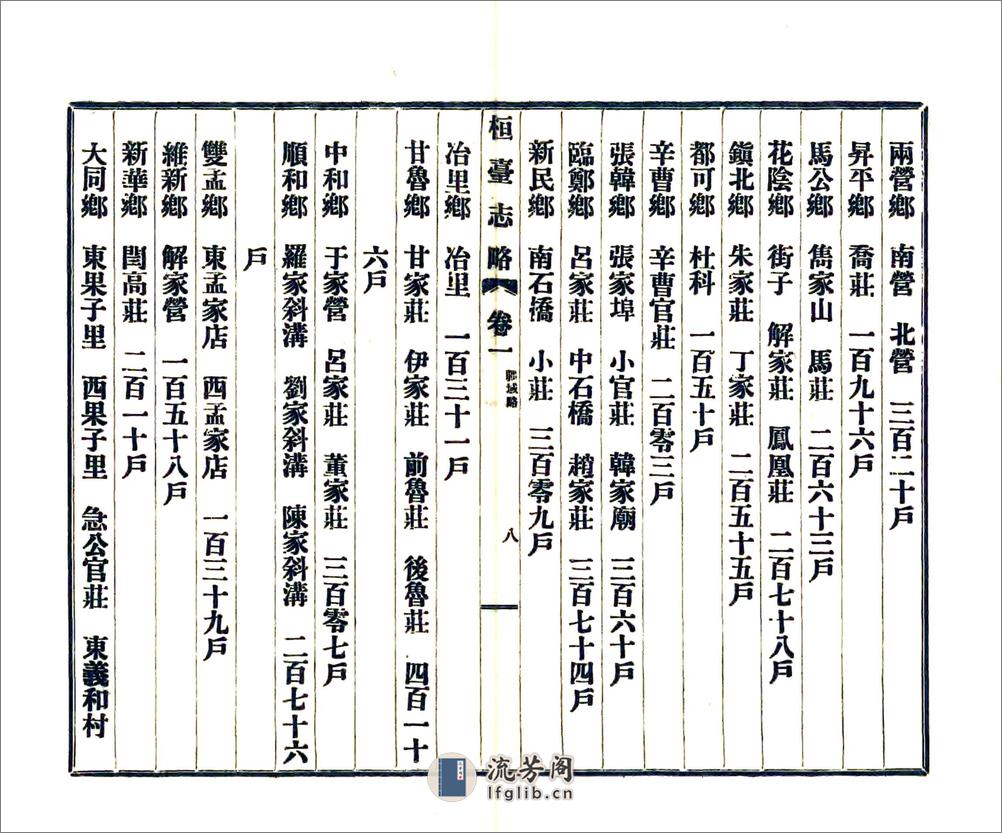 兩營鄉　南營　北營　三百二十戶
昇平鄉　喬莊　一百九十六戶
馬公鄉　雋家山　馬莊　二百六十三戶
花陰鄉　街子　解家莊　鳳凰莊　二百七十八戶
鎭北鄉　朱家莊　丁家莊　二百五十五戶
都可鄉　杜科　一百五十戶
辛曹鄉　辛曹官莊　二百零三戶
張韓鄉　張家埠　小官莊　韓家廟　三百六十戶
臨鄭鄉　呂家莊　中石橋　趙家莊　三百七十四戶
新民鄉　南石橋　小莊　三百零九戶
桓臺志略　卷一　鄣域略　八
冶里鄉　冶里　一百三十一戶
甘魯鄉　甘家莊　伊家莊　前魯莊　後魯莊　四百一十
六戶
中和鄉　于家營　呂家莊　董家莊　三百零七戶
順和鄉　羅家斜溝　劉家斜溝　陳家斜溝　二百七十六
戶
雙孟鄉　東孟家店　西孟家店　一百三十九戶
維新鄉　解家營　一百五十八戶
新華鄉　閆高莊　二百一十戶
大同鄉　東果子里　西果子里　急公官莊　東義和村
流芳阁
lfglib.cn